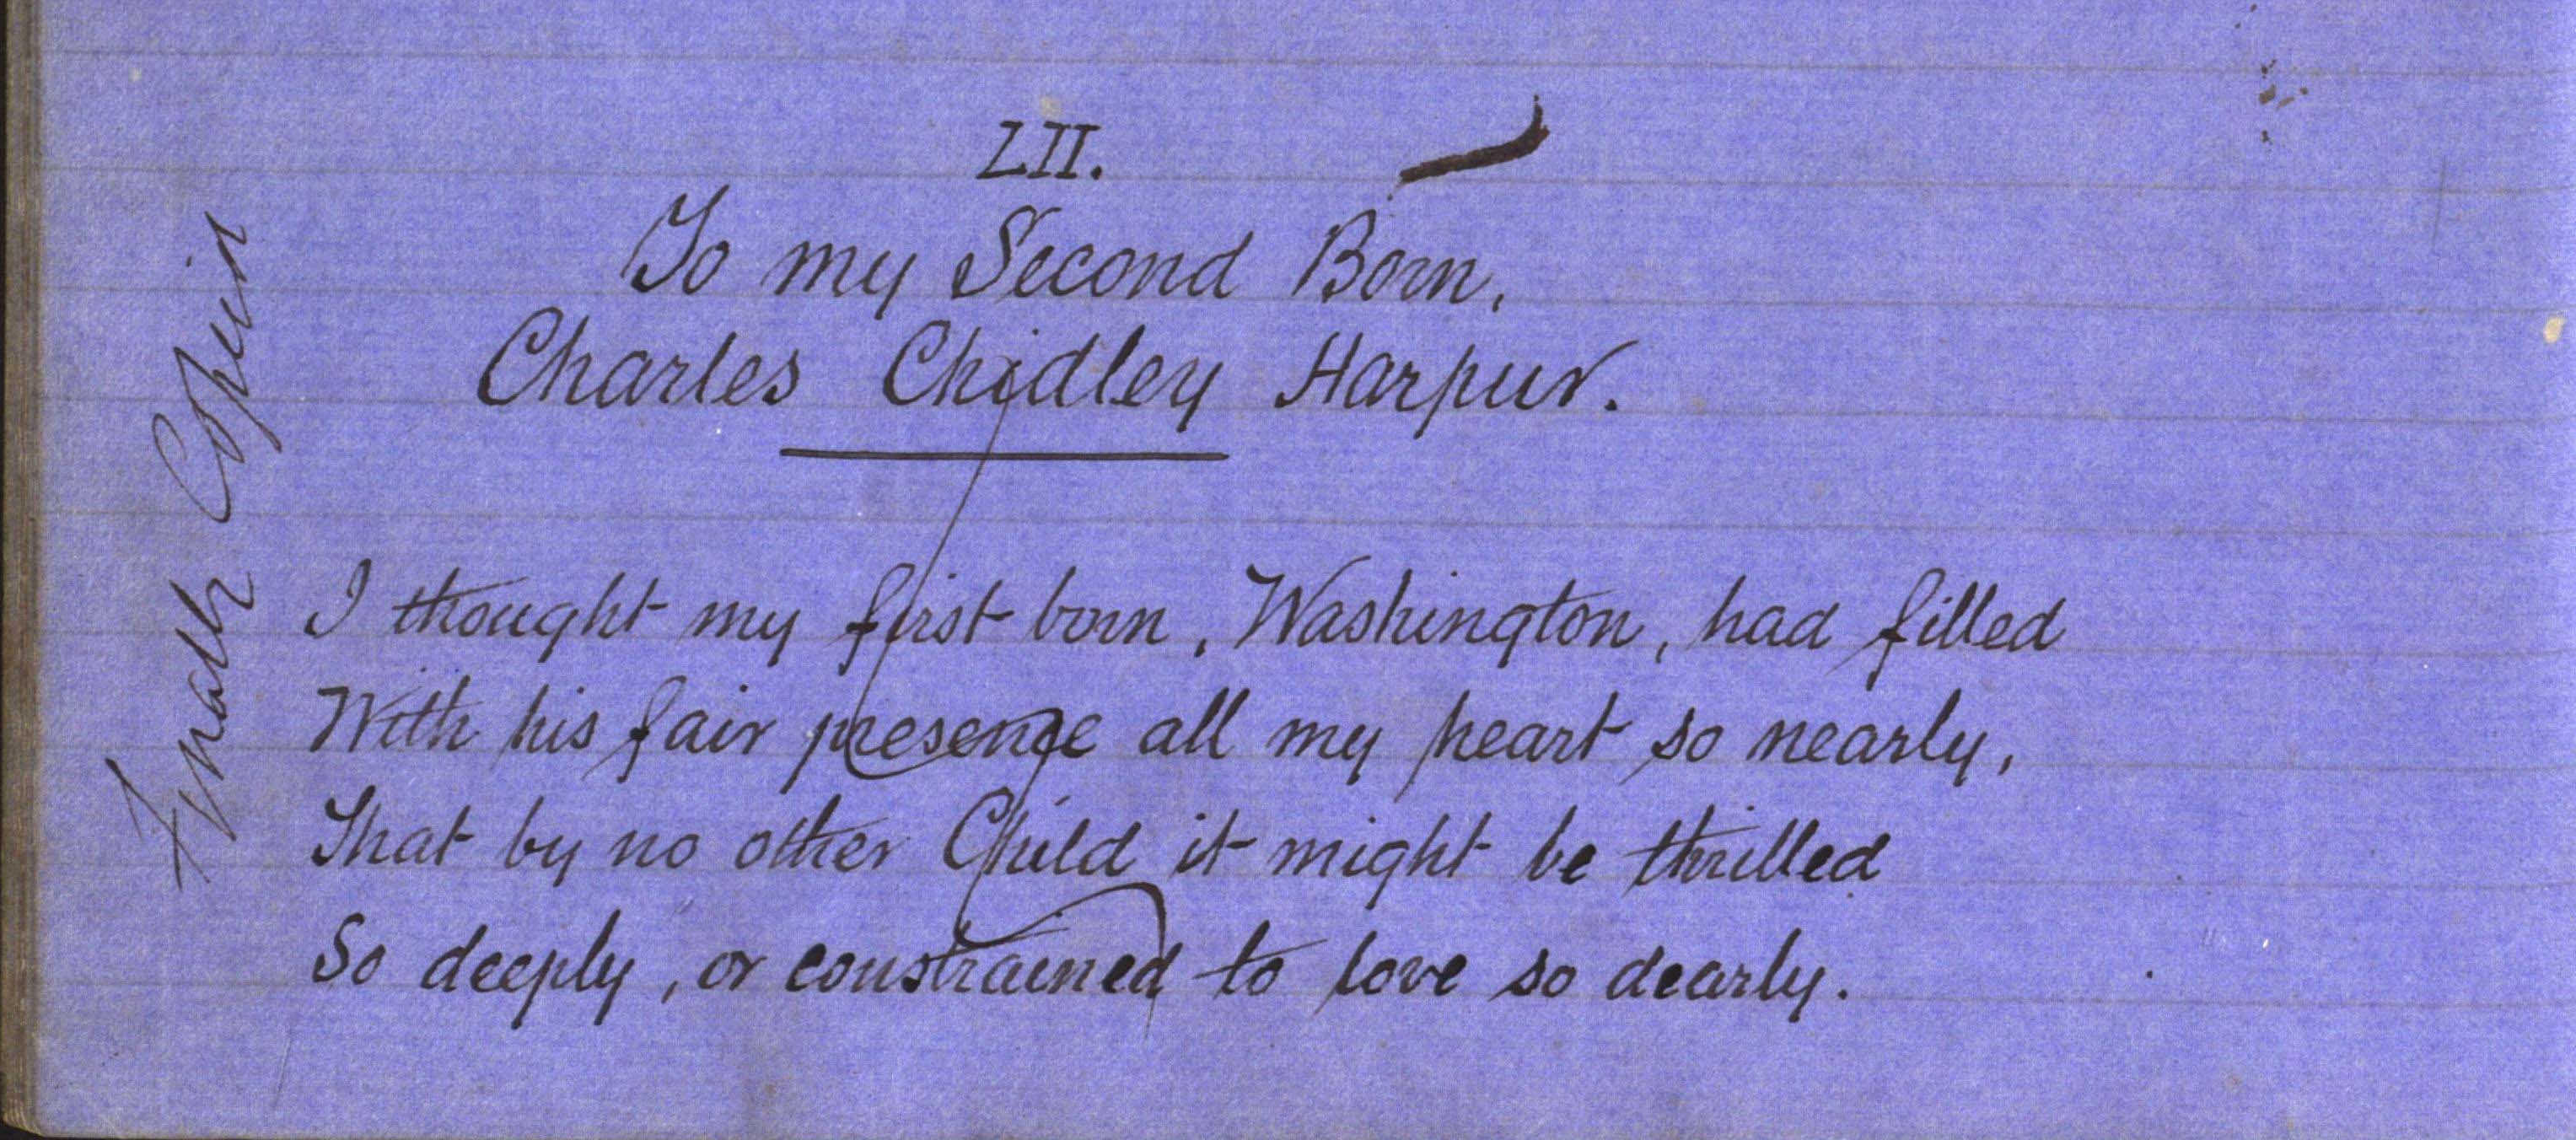 LII.
To my Second Born,
Charles Chidley Harpur.
I thought my first born, Washington, had filled
With his fair presence all my heart so nearly,
That by no other Child it might be thrilled
So deeply, or constrained to love so dearly.
Finally Copied